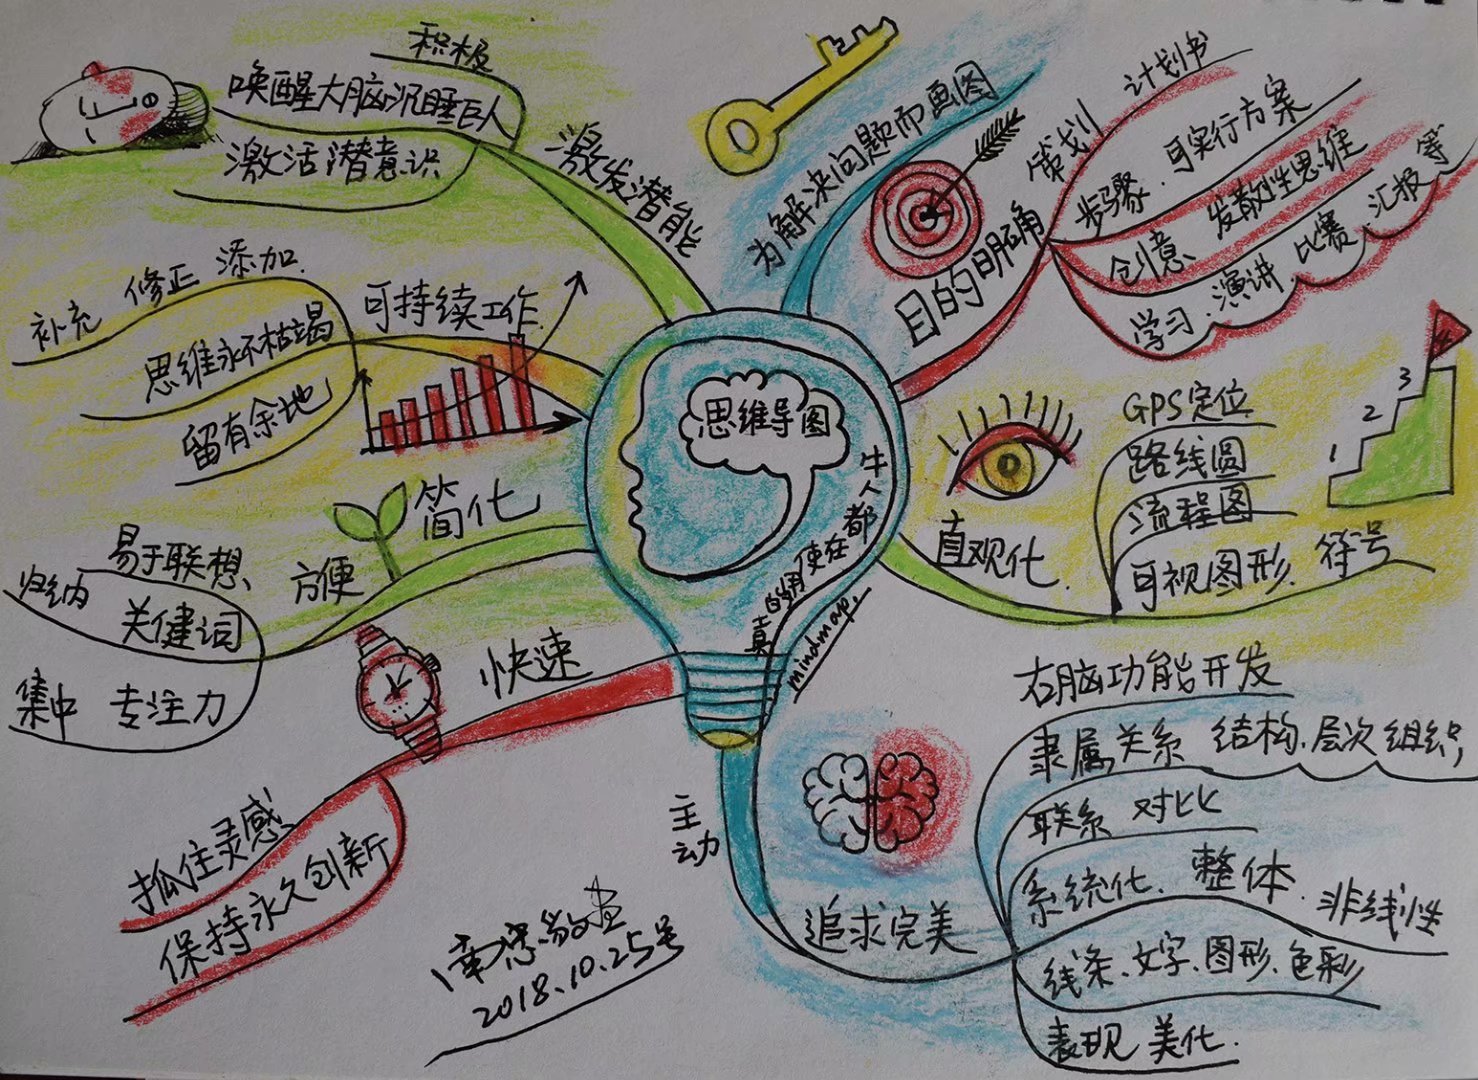 思维导图
牛人都
在使
用的
真
mindmap.
为解决问题而画图
目的明确
策划 计划书
步骤、可实行方案
创意、发散性思维
学习、演讲 比赛、汇报 等
直观化.
GPS定位
路线圆
流程图
可视图形. 符号
1
2
3
主动
追求完美
右脑功能开发
隶属关系 结构、层次组织,
联系 对比
系统化. 整体. 非线性
线条、文字、图形、色彩
表现 美化.
快速
抓住灵感、
保持永久创新
简化
方便
易于联想、
归纳 关键词
集中 专注力
可持续工作.
补充 修正 添加.
思维永不枯竭
留有余地
激发潜能
积极
唤醒大脑沉睡巨人
激活潜意识
2018.10.25号